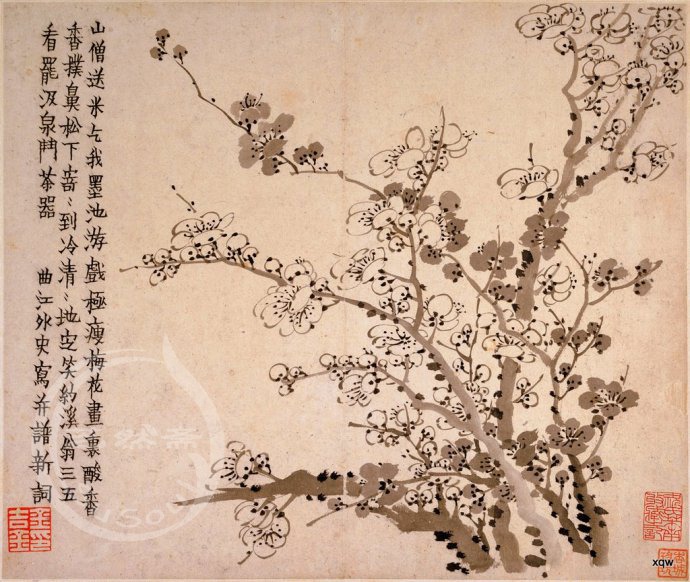 山僧送米乞我墨池游戲極瘦梅花畫裏酸香
香撲鼻松下寄〻到冷清〻地定笑約溪翁三五
看罷汲泉鬥茶器 曲江外史寫并譜新詞
xqw